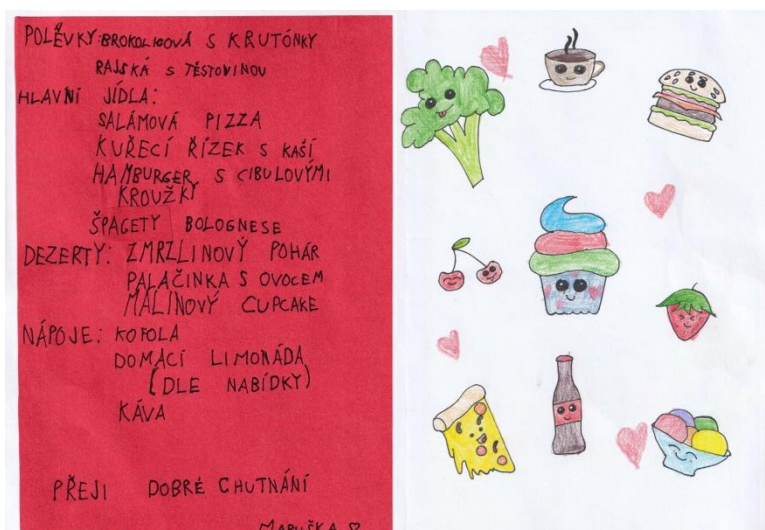 POLÉVKY: BROKOLICOVÁ S KRUTÓNKY
RAJSKÁ S TĚSTOVINOU
HLAVNÍ JÍDLA:
SALÁMOVÁ PIZZA
KUŘECÍ ŘÍZEK S KAŠÍ
HAMBURGER S CIBULOVÝMI
KROUŽKY
ŠPAGETY BOLOGNESE
DEZERTY: ZMRZLINOVÝ POHÁR
PALAČINKA S OVOCEM
MALINOVÝ CUPCAKE
NÁPOJE: KOFOLA
DOMACÍ LIMONÁDA
(DLE NABÍDKY)
KÁVA
PŘEJI DOBRÉ CHUTNÁNÍ
MARUŠKA ♡